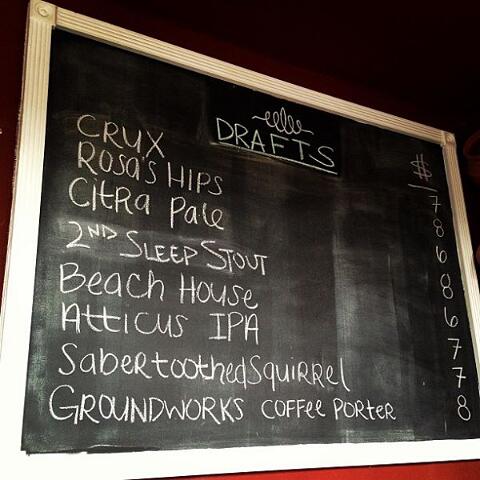 DRAFTS
$
CRUX 7
Rosa's HIPS 8
Citra Pale 6
2ND SLEEP STOUT 8
Beach House 6
Atticus IPA 7
Sabertoothed Squirrel 7
GROUNDWORKS COFFee PORTER 8